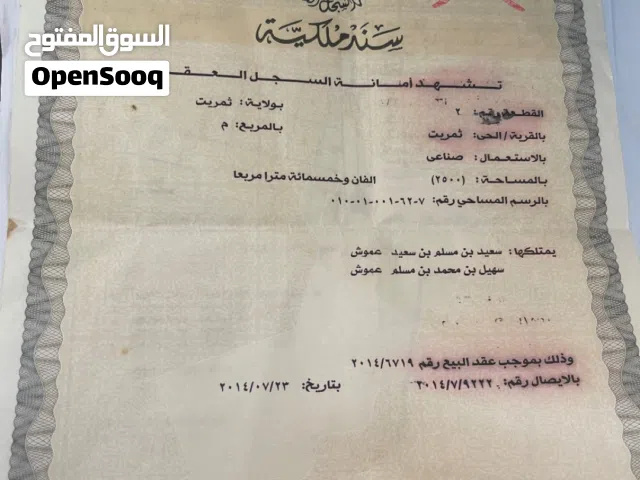 السوق المفتوح
OpenSooq
سند ملكية
تشهد أمانة السجل العقـ
القطعة رقم: ٢
بولاية: ثمريت
بالقرية / الحى: ثمريت
بالمربع: م
بالاستعمال: صناعى
بالمساحة: (٢٥٠٠) الفان وخمسمائة مترا مربعا
بالرسم المساحي رقم: ٧-٦٢-٠٠١-٠١-٠١٠
يمتلكها: سعيد بن مسلم بن سعيد عموش
سهيل بن محمد بن مسلم عموش
وذلك بموجب عقد البيع رقم ٢٠١٤/٦٧١٩
بالايصال رقم: ٢٠١٤/٧/٩٢٢٢ بتاريخ: ٢٠١٤/٠٧/٢٣